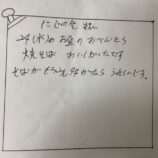 にじの色 様へ
24(水)のお昼のおべんとう
焼そば おいしかったです
そばが もう少し多かったら うれしいです。